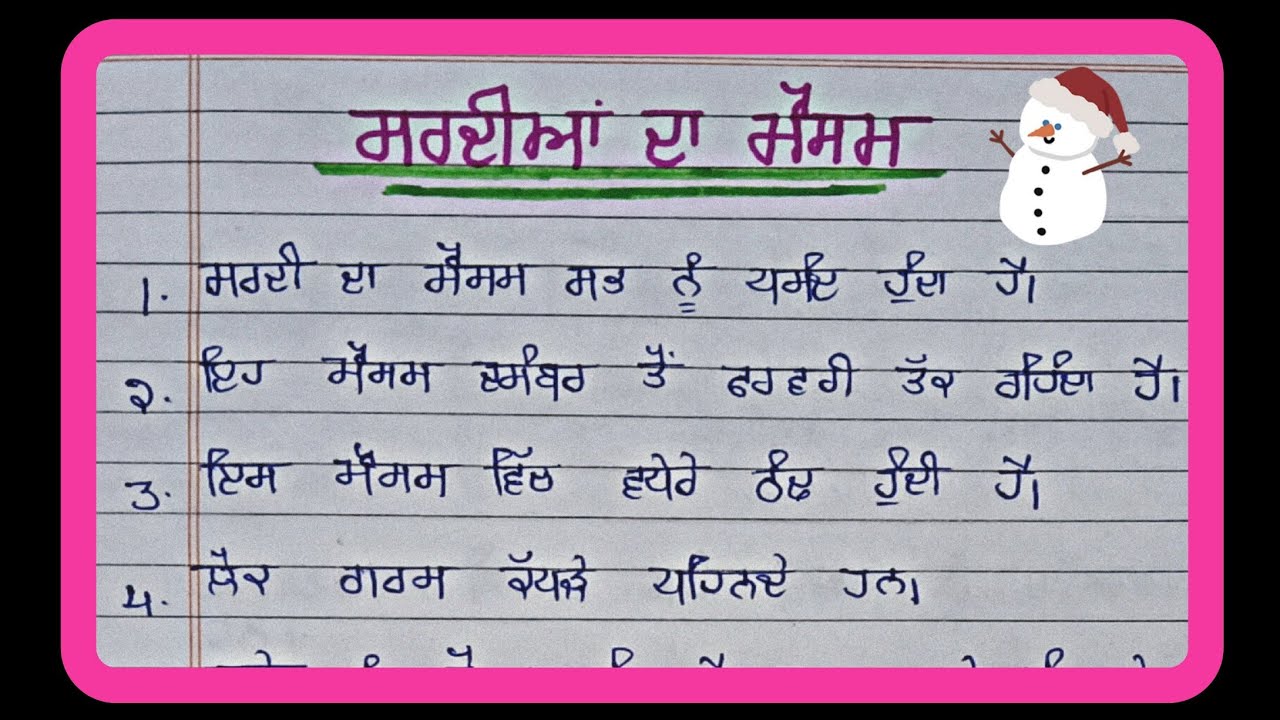 ਸਰਦੀਆਂ ਦਾ ਮੌਸਮ
1. ਸਰਦੀ ਦਾ ਮੌਸਮ ਸਭ ਨੂੰ ਪਸੰਦ ਹੁੰਦਾ ਹੈ।
੨. ਇਹ ਮੌਸਮ ਦਸੰਬਰ ਤੋਂ ਫਰਵਰੀ ਤੱਕ ਰਹਿੰਦਾ ਹੈ।
3. ਇਸ ਮੌਸਮ ਵਿੱਚ ਵਧੇਰੇ ਠੰਢ ਹੁੰਦੀ ਹੈ।
4. ਲੋਕ ਗਰਮ ਕੱਪੜੇ ਪਹਿਨਦੇ ਹਨ।